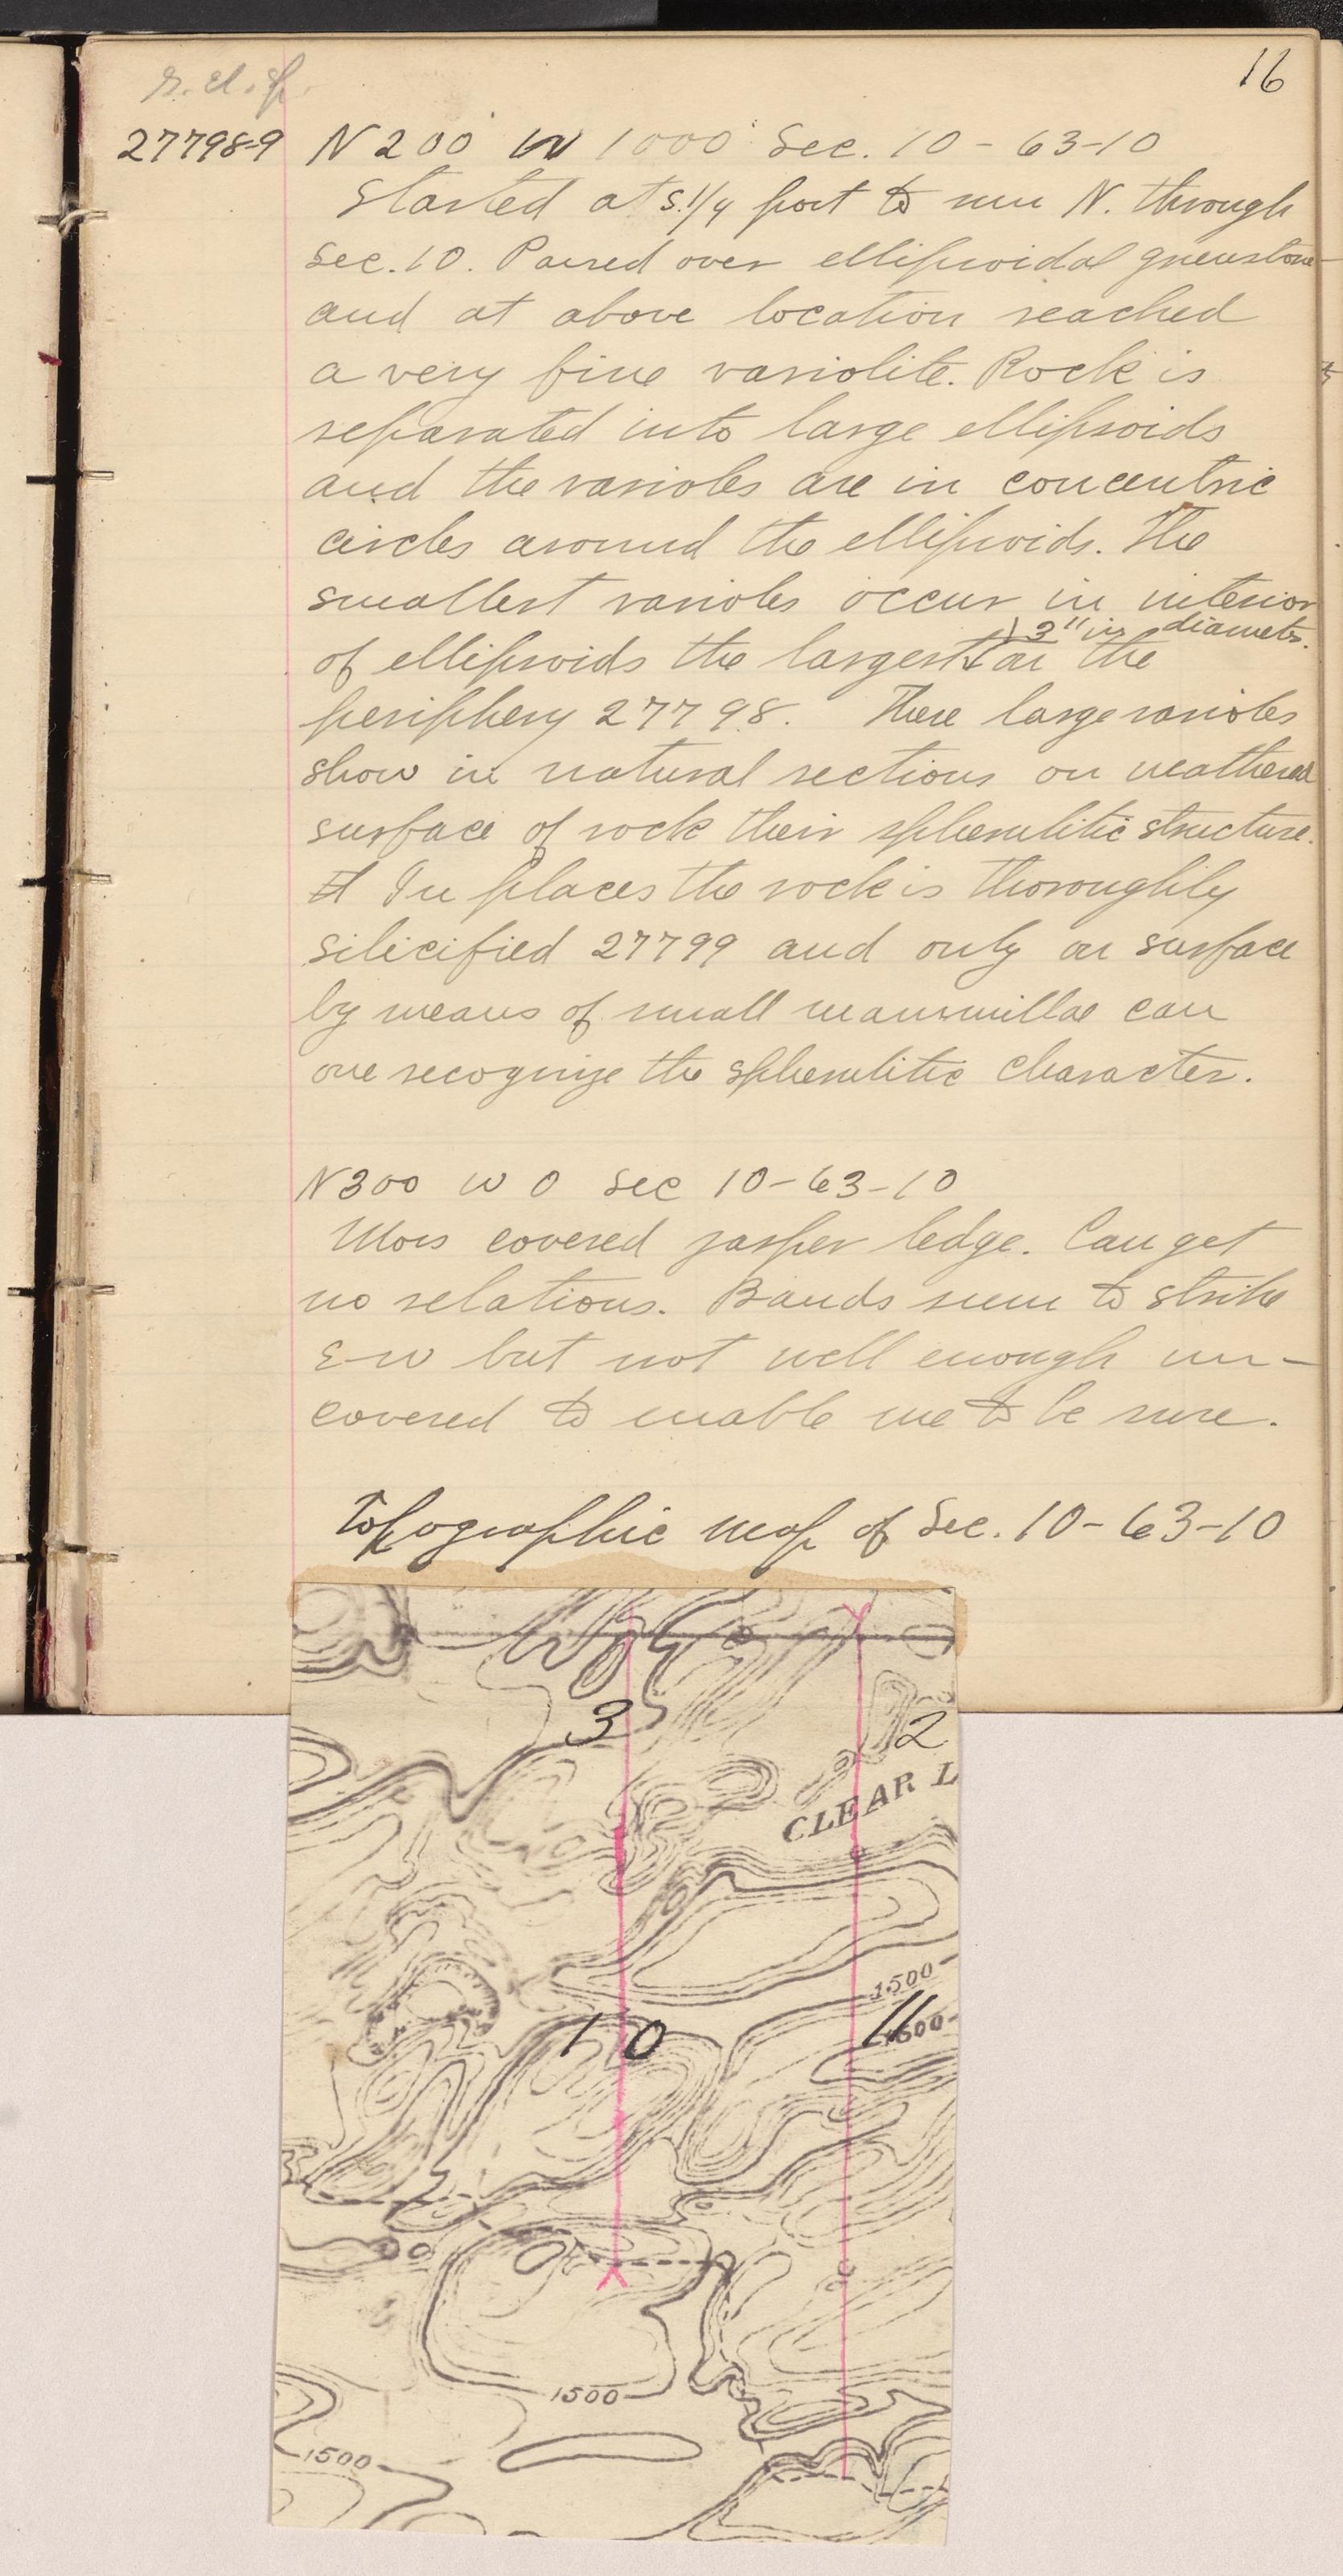 16
27798-9 N 200 W 1000 Sec. 10 - 63-10
Started at S.1/4 post to run N. through
Sec. 10. Passed over ellipsoidal greenstone
and at above location reached
a very fine variolite. Rock is
separated into large ellipsoids
and the varioles are in concentric
circles around the ellipsoids. The
smallest varioles occur in interior
3" in diameter.
of ellipsoids the largest at the
periphery 27798. These large varioles
show in natural sections on weathered
surface of rock their spherulitic structure.
In places the rock is thoroughly
silicified 27799 and only on surface
by means of small mammillae can
one recognize the spherulitic character.
N300 W 0 Sec 10-63-10
Moss covered jasper ledge. Can get
no relations. Bands seem to strike
E-W but not well enough un-
covered to enable me to be sure.
Topographic map of Sec. 10-63-10
3
2
CLEAR L
1500
11
1500
10
1500
1500